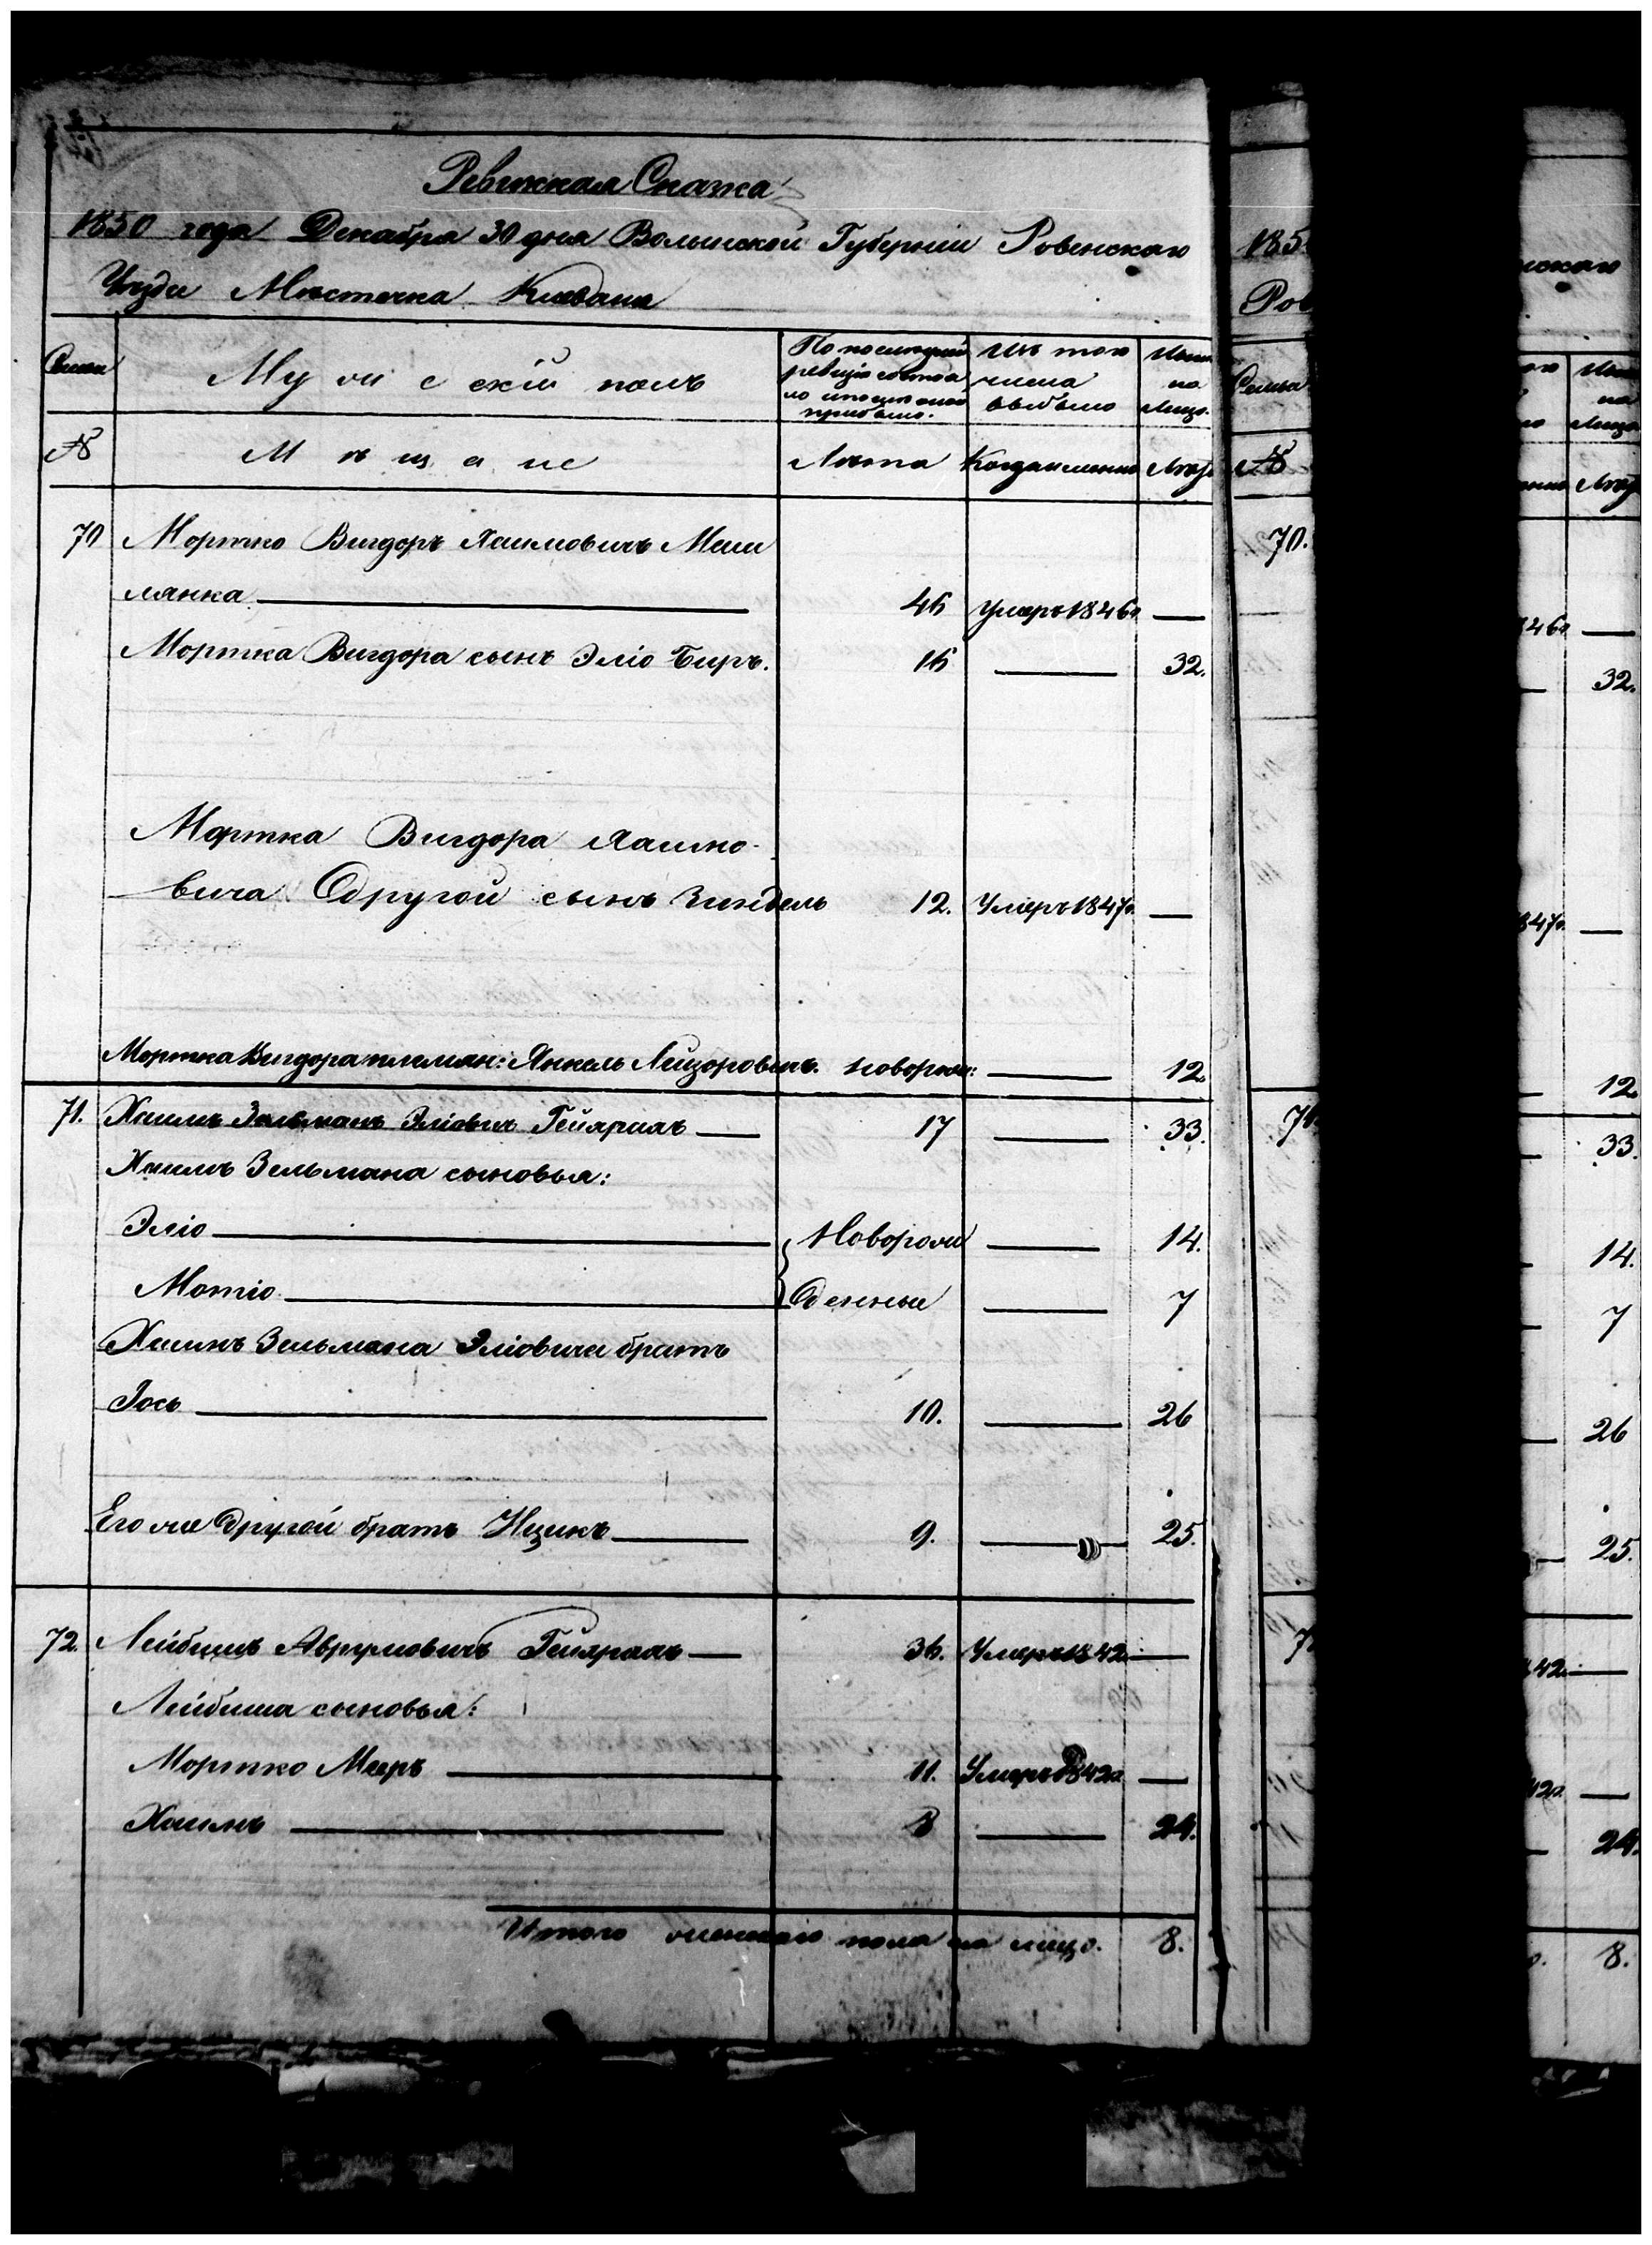 Ревижская Сказка
1850 года Декабря 30 дня Волынской Губерніи Ровенскаго
Уезда Мѣстечка Клевани
Семьи
Мужескій полъ
По последней ревизіи состояло и после оной прибыло.
Изъ того числа выбыло
Ныне на лицо.
№
Мѣщане
Лѣта
Когда именно
Лѣта
70 Мортко Вигдоръ Хаимовичъ Меш
лянка 46 Умеръ 1846г —
Мортка Вигдора сынъ Эліо Беръ. 16 — 32.
Мортка Вигдора Хаимо-
вича Другой сынъ Зиндель 12. Умеръ 1847г. —
Мортка Вигдора племян: Янкель Лейзоровичъ. новорож: — 12.
71. Хаимъ Зельманъ Эліовичъ Гейярманъ — 17 — 33.
Хаимъ Зельмана сыновья:
Эліо — Новорож — 14.
Мотіо — Денные — 7
Хаимъ Зельмана Эліовича братъ
Іось — 10. — 26
Его же Другой братъ Ицикъ — 9. — 25.
72. Лейбишъ Аврумовичъ — 36. Умеръ 1842 —
Лейбиша сыновья:
Мортко Мееръ — 11. Умеръ 1842г. —
Хаимъ — 8 — 24.
Итого мужескаго пола на лицо. 8.
185
Ров
Семьи
№
70.
скаго
на
Лицо
1846г —
32.
1847г. —
12.
33.
14.
7
26
25.
42. —
42г. —
24.
8.